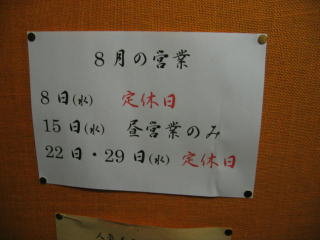 8月の営業
8日(水) 定休日
15日(水) 昼営業のみ
22日・29日(水) 定休日